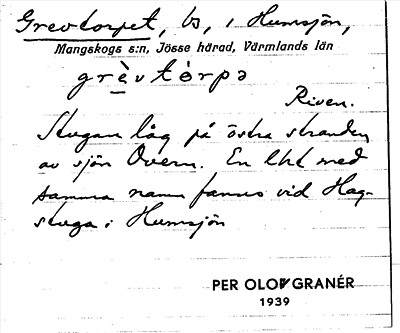 Grevtorpet, bs, i Humsjön,
Mangskogs s:n, Jösse härad, Värmlands län
grèvtòrpə
Riven.
Stugan låg på östra stranden
av sjön Övern. En lht med
samma namn fanns vid Hag-
stuga i Humsjön
PER OLOF GRANÉR
1939